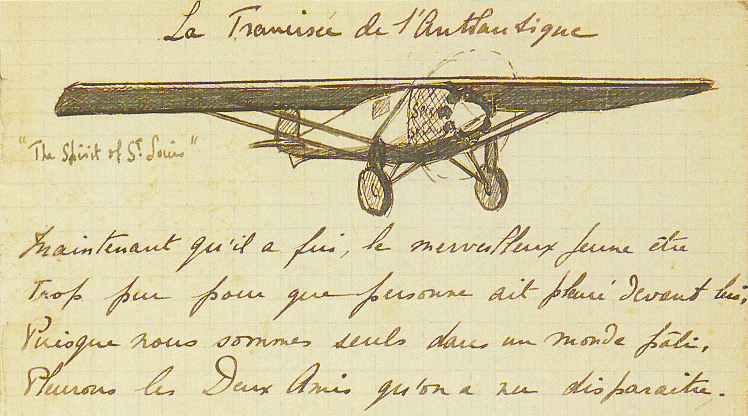 La Traversée de l'Atlantique
"The Spirit of St Louis"
Maintenant qu'il a fui, le merveilleux jeune être
Trop pur pour que personne ait pleuré devant lui,
Puisque nous sommes seuls dans un monde pâli,
Pleurons les Deux Amis qu'on a vu disparaitre.